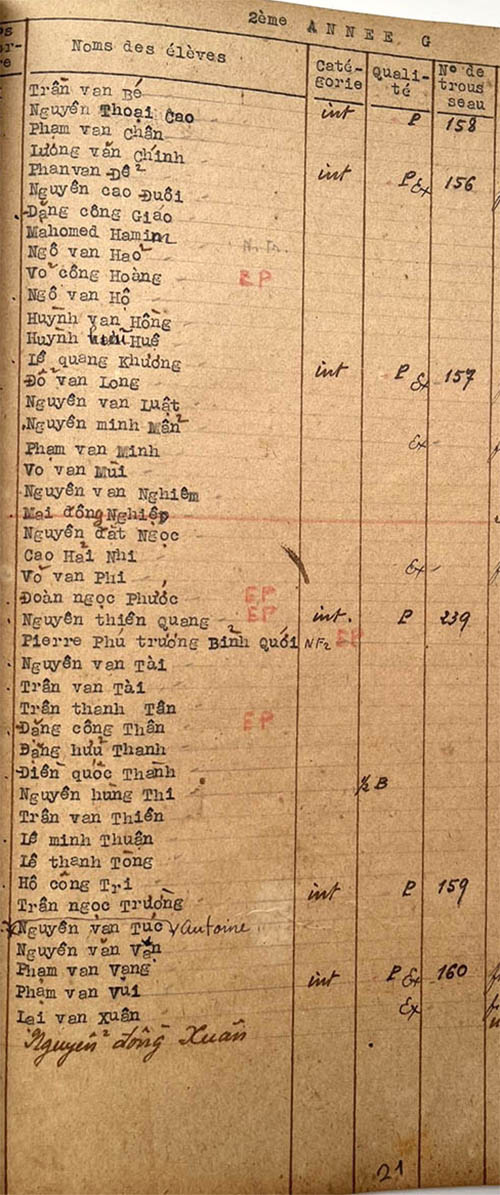 2ème ANNEE G
Noms des élèves Caté-gorie Quali-té Nº de trous seau
Trần van Bé
Nguyễn Thoại Cao int P 158
Phạm van Chân
Lương văn Chính
Phanvan Đê int P Ex 156
Nguyễn cao Đuổi
Đặng công Giáo
Mahomed Hamim
Ngô van Hao N.Tr.
Vo công Hoàng EP
Ngô van Hộ
Huỳnh van Hồng
Huỳnh Huê
Lê quang Khương int P Ex 157
Đỗ van Long
Nguyễn van Luật
Nguyễn minh Mẫn
Phạm van Minh Ex
Vo van Mùi
Nguyễn van Nghiêm
Mai đồng Nghiệp
Nguyễn đắt Ngọc
Cao Hải Nhi
Võ van Phi Ex
Đoàn ngọc Phước EP
Nguyễn thiên Quang EP int. P 239
Pierre Phú trương Bình Quới NF2 EP
Nguyễn van Tài
Trần van Tài
Trần thanh Tân
Đặng công Thân EP
Đặng hữu Thanh
Điền quốc Thành
Nguyễn hùng Thi ½ B
Trần van Thiên
Lê minh Thuận
Lê thanh Tòng
Hồ công Tri
Trần ngọc Trường int P 159
Nguyễn van Tuc Antoine
Nguyễn văn Vạn
Phạm van Vạng int P Ex 160
Phạm van Vui
Lai van Xuân Ex
Nguyễn đồng Xuân
21